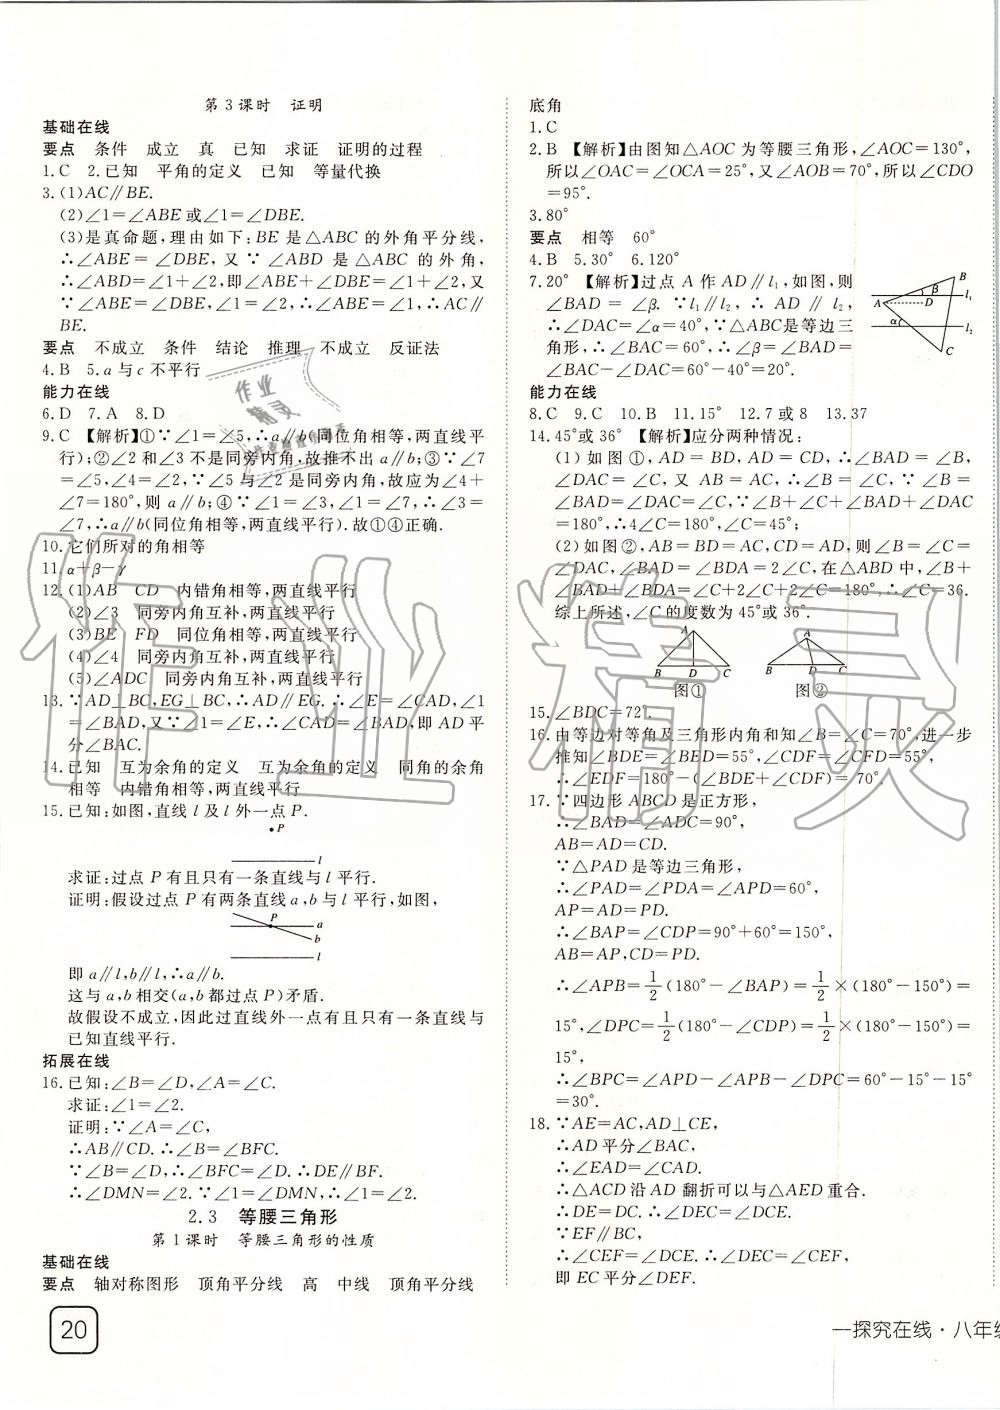 第3课时　证明
基础在线
要点　条件　成立　真　已知　求证　证明的过程
1.C　2.已知　平角的定义　已知　等量代换
3.(1)AC∥BE.
(2)∠1=∠ABE或∠1=∠DBE.
(3)是真命题,理由如下:BE是△ABC的外角平分线,
∴∠ABE=∠DBE,又∵∠ABD是△ABC的外角,
∴∠ABD=∠1+∠2,即∠ABE+∠DBE=∠1+∠2,又
∵∠ABE=∠DBE,∠1=∠2,∴∠ABE=∠1,∴AC∥
BE.
要点　不成立　条件　结论　推理　不成立　反证法
4.B　5.a与c不平行
能力在线
6.D　7.A　8.D
9.C　【解析】①∵∠1=∠5,∴a∥b(同位角相等,两直线平
行);②∠2和∠3不是同旁内角,故推不出a∥b;③∵∠7
=∠5,∠2=∠5,∵∠5与∠2是同旁内角,故应为∠4+
∠7=180°,则a∥b;④∵∠1=∠3,∠1=∠7,∴∠3=
∠7,∴a∥b(同位角相等,两直线平行).故①④正确.
10.它们所对的角相等
11.α+β-γ
12.(1)AB　CD　内错角相等,两直线平行
(2)∠3　同旁内角互补,两直线平行
(3)BE　FD　同位角相等,两直线平行
(4)∠4　同旁内角互补,两直线平行
(5)∠ADC　同旁内角互补,两直线平行
13.∵AD⊥BC,EG⊥BC,∴AD∥EG,∴∠E=∠CAD,∠1
=∠BAD,又∵∠1=∠E,∴∠CAD=∠BAD,即AD平
分∠BAC.
14.已知　互为余角的定义　互为余角的定义　同角的余角
相等　内错角相等,两直线平行
15.已知:如图,直线l及l外一点P.
P
l
求证:过点P有且只有一条直线与l平行.
证明:假设过点P有两条直线a,b与l平行,如图,
P
a
b
l
即a∥l,b∥l,∴a∥b.
这与a,b相交(a,b都过点P)矛盾.
故假设不成立,因此过直线外一点有且只有一条直线与
已知直线平行.
拓展在线
16.已知:∠B=∠D,∠A=∠C.
求证:∠1=∠2.
证明:∵∠A=∠C,
∴AB∥CD.∴∠B=∠BFC.
∵∠B=∠D,∴∠BFC=∠D.∴DE∥BF.
∴∠DMN=∠2.∵∠1=∠DMN,∴∠1=∠2.
2.3　等腰三角形
第1课时　等腰三角形的性质
基础在线
要点　轴对称图形　顶角平分线　高　中线　顶角平分线
20
底角
1.C
2.B　【解析】由图知△AOC为等腰三角形,∠AOC=130°,
所以∠OAC=∠OCA=25°,又∠AOB=70°,所以∠CDO
=95°.
3.80°
要点　相等　60°
4.B　5.30°　6.120°
7.20°　【解析】过点A作AD∥l₁,如图,则
∠BAD=∠β.∵l₁∥l₂,∴AD∥l₂,
∴∠DAC=∠α=40°,∵△ABC是等边三
角形,∴∠BAC=60°,∴∠β=∠BAD=
∠BAC-∠DAC=60°-40°=20°.
B
β
l₁
A
D
α
l₂
C
能力在线
8.C　9.C　10.B　11.15°　12.7或8　13.37
14.45°或36°　【解析】应分两种情况:
(1)如图①,AD=BD,AD=CD,∴∠BAD=∠B,
∠DAC=∠C,又AB=AC,∴∠B=∠C,∵∠B=
∠BAD=∠DAC=∠C,∵∠B+∠C+∠BAD+∠DAC
=180°,∴4∠C=180°,∠C=45°;
(2)如图②,AB=BD=AC,CD=AD,则∠B=∠C=
∠DAC,∠BAD=∠BDA=2∠C,在△ABD中,∠B+
∠BAD+∠BDA=∠C+2∠C+2∠C=180°,∴∠C=36.
综上所述,∠C的度数为45°或36°.
A
B　D　C
图①
A
B　D　C
图②
15.∠BDC=72°.
16.由等边对等角及三角形内角和知∠B=∠C=70°,进一步
推知∠BDE=∠BED=55°,∠CDF=∠CFD=55°,
∴∠EDF=180°-(∠BDE+∠CDF)=70°
17.∵四边形ABCD是正方形,
∴∠BAD=∠ADC=90°,
AB=AD=CD.
∵△PAD是等边三角形,
∴∠PAD=∠PDA=∠APD=60°,
AP=AD=PD.
∴∠BAP=∠CDP=90°+60°=150°,
AB=AP,CD=PD.
∴∠APB=1/2(180°-∠BAP)=1/2×(180°-150°)=
15°,∠DPC=1/2(180°-∠CDP)=1/2×(180°-150°)=
15°,
∴∠BPC=∠APD-∠APB-∠DPC=60°-15°-15°
=30°.
18.∵AE=AC,AD⊥CE,
∴AD平分∠BAC,
∴∠EAD=∠CAD.
∴△ACD沿AD翻折可以与△AED重合.
∴DE=DC.∴∠DEC=∠DCE.
∵EF∥BC,
∴∠CEF=∠DCE.∴∠DEC=∠CEF,
即EC平分∠DEF.
一探究在线·八年级
作业精灵